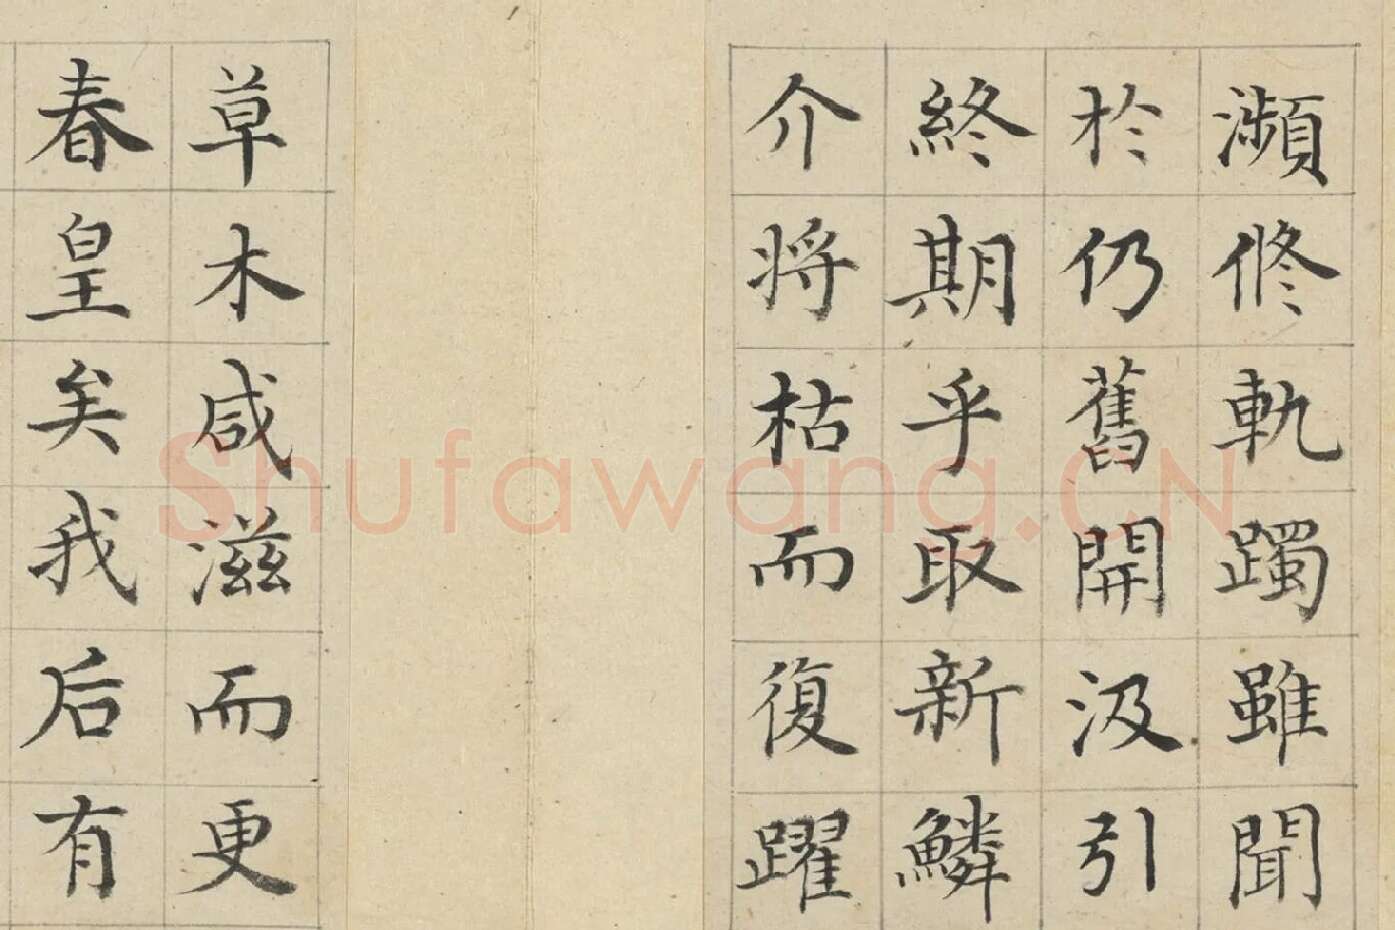 瀕修軌躅雖聞
於仍舊開汲引
終期乎取新鱗
介將枯而復躍
草木咸滋而更
春皇矣我后有
Shufawang.CN